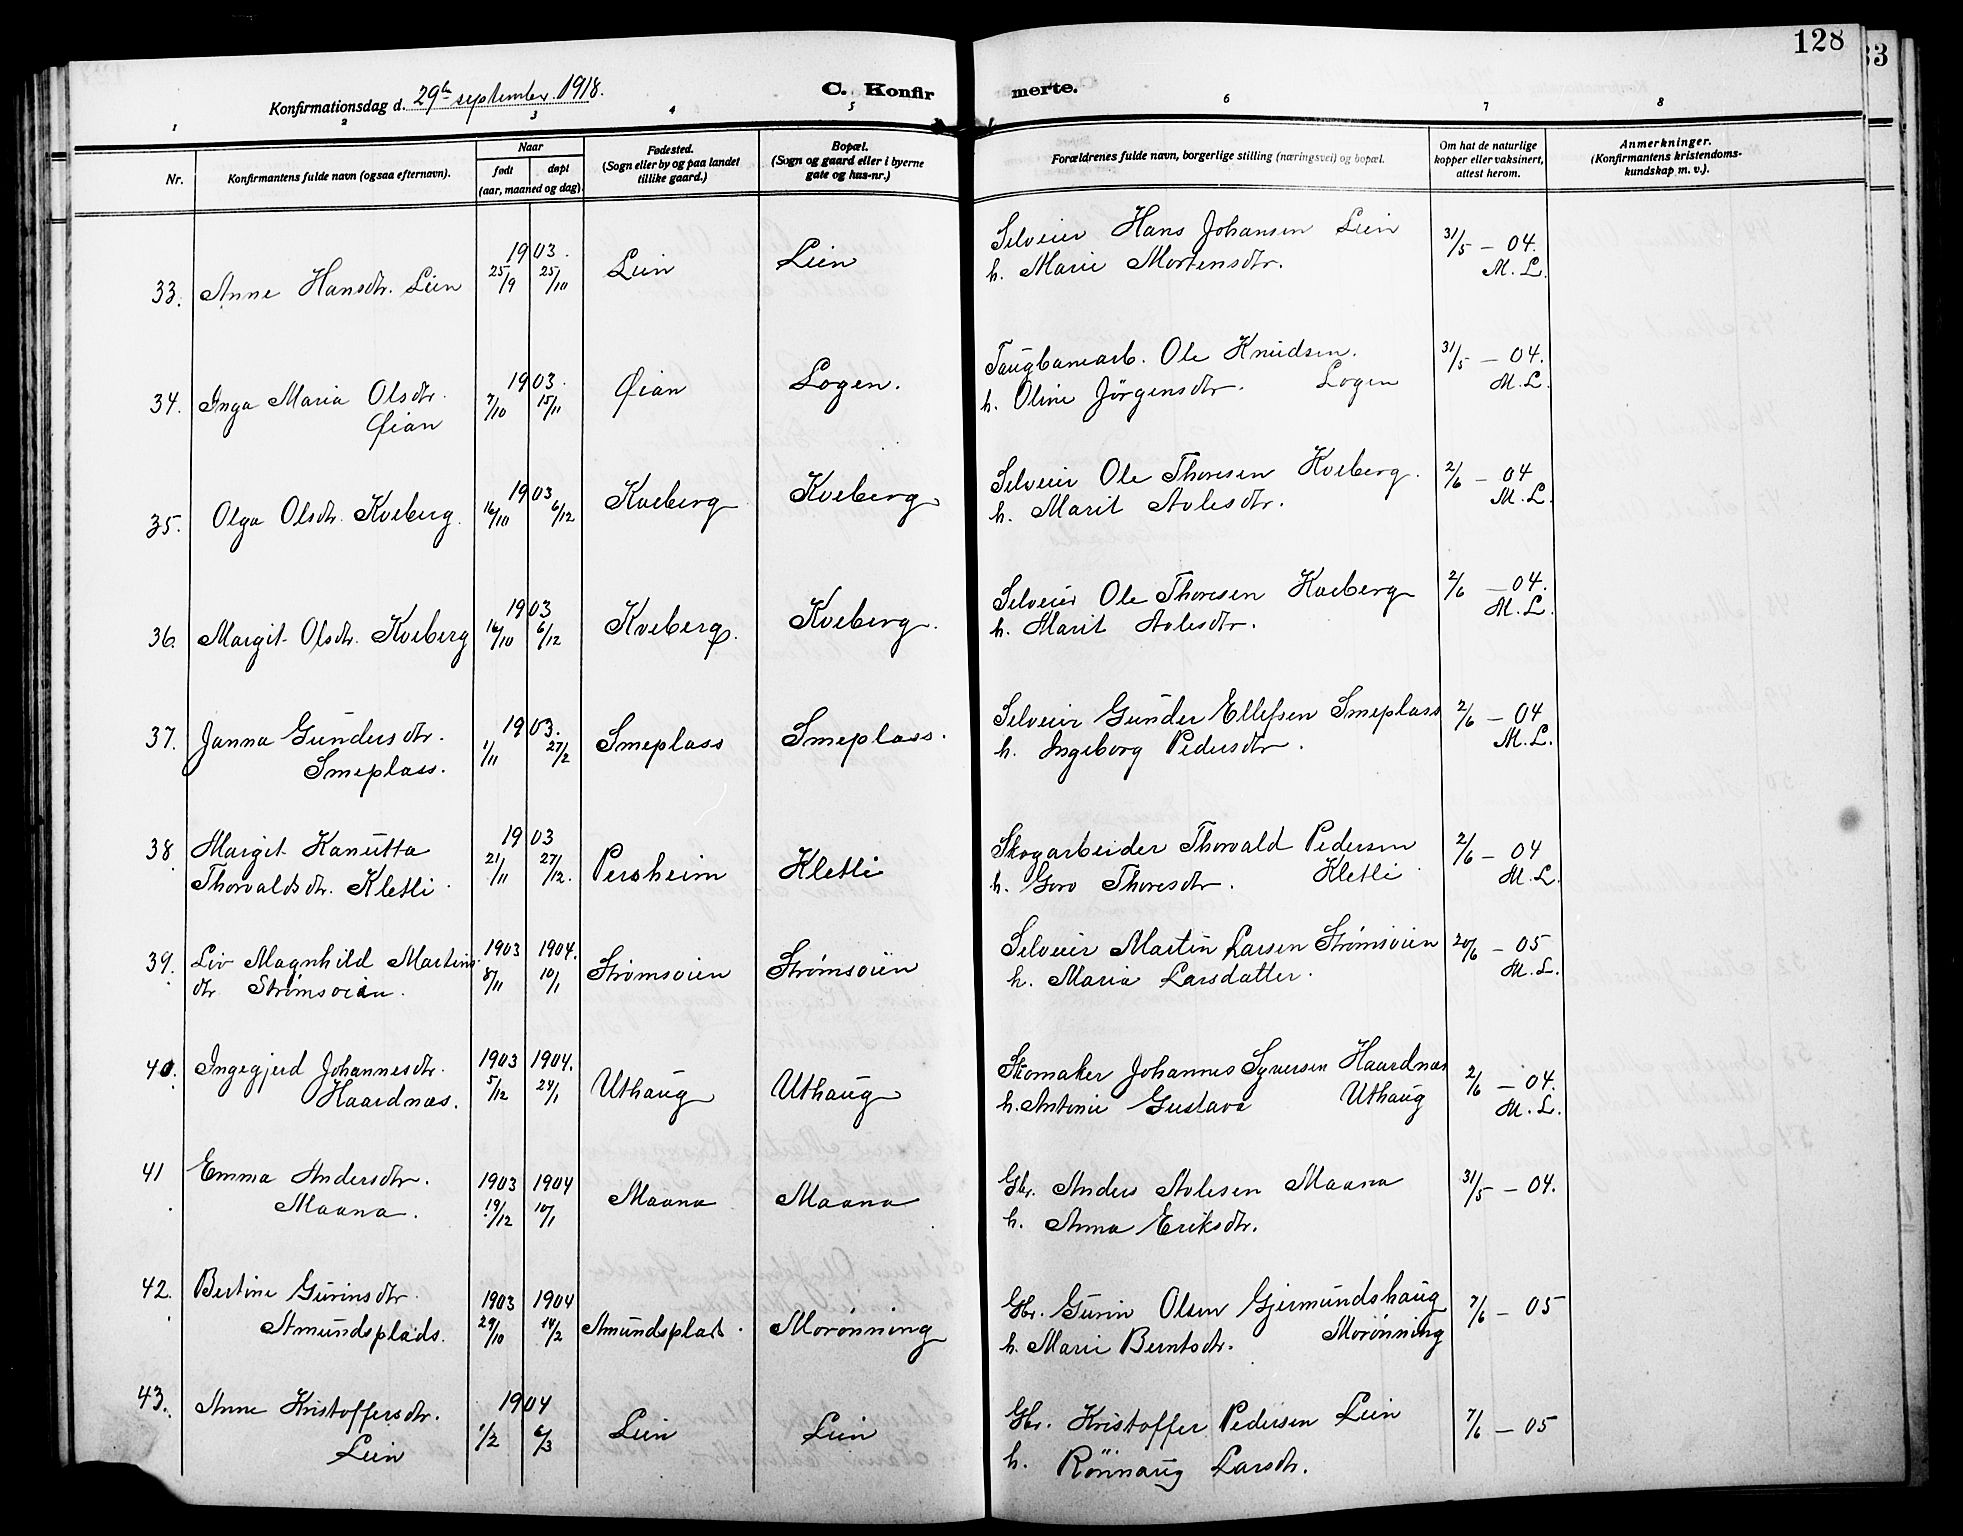 128
33
Konfirmationsdag d. 29de september 1918.
C. Konfir
merte.
1
2
3
4
5
6
7
8
Nr.
Konfirmantens fulde navn (ogsaa efternavn).
Naar
født
døpt
(aar, maaned og dag).
Fødested.
(Sogn eller by og paa landet
tillike gaard.)
Bopæl.
(Sogn og gaard eller i byerne
gate og hus-nr.)
Forældrenes fulde navn, borgerlige stilling (næringsvei) og bopæl.
Om hat de naturlige
kopper eller vaksinert,
attest herom.
Anmerkninger.
(Konfirmantens kristendoms-
kundskap m. v.).
33. Anne Hansdtr. Lien
1903.
25/9 25/10
Lien
Lien
Selveier Hans Johansen Lien
h. Marie Mortensdtr.
31/5 – 04.
M. L.
34. Inga Maria Olsdtr.
Øian
1903.
7/10 15/11
Øian
Logen.
Taugbanearb. Ole Knudsen.
h. Oline Jörgensdtr. Logen
31/5 – 04.
M. L.
35. Olga Olsdtr. Kveberg.
1903
16/10 6/12
Kveberg
Kveberg
Selveier Ole Thoresen Kveberg.
h. Marit Avlesdtr.
2/6 – 04
M. L.
36. Margit Olsdtr. Kveberg
1903
16/10 6/12
Kveberg.
Kveberg.
Selveier Ole Thoresen Kveberg
h. Marit Avlesdtr.
2/6 – 04.
M. L.
37. Janna Gundersdtr.
Smeplass.
1903.
1/11 27/2
Smeplass
Smeplass.
Selveier Gunder Ellefsen Smeplass
h. Ingeborg Pedersdtr.
2/6 – 04
M. L.
38 Margit Kanutta
Thorvaldsdtr. Kletli.
1903
21/11 27/12.
Persheim
Kletli
Skogarbeider Thorvald Pedersen
h. Goro Thoresdtr. Kletli
2/6 – 04
M. L.
39. Liv Magnhild Martins
dtr. Strømsøien.
1903 1904.
8/11 10/1
Strømsøien
Strømsøien
Selveier Martin Larsen Strømsøien
h. Maria Larsdatter.
20/6 – 05
M. L.
40. Ingegjerd Johannesdtr.
Haardnæs.
1903 1904.
5/12 24/1
Uthaug
Uthaug
Skomaker Johannes Syversen Haardnæs
h. Antonie Gustava Uthaug
2/6 – 04.
M. L.
41. Emma Andersdtr.
Maana.
1903 1904
19/12 10/1
Maana
Maana
Gbr. Anders Avlesen Maana
h. Anna Eriksdtr.
31/5 – 04.
42. Bertine Gurinsdtr.
Amundsplads.
1903 1904
29/10 14/2
Amundsplads.
Morønning
Gbr. Gurin Olsen Gjermundshaug
h. Marie Berntsdtr. Morønning
7/6 – 05
43. Anne Kristoffersdtr.
Lien
1904
1/2 6/3
Lien
Lien
Gbr. Kristoffer Pedersen Lien
h. Rönnaug Larsdtr.
7/6 – 05